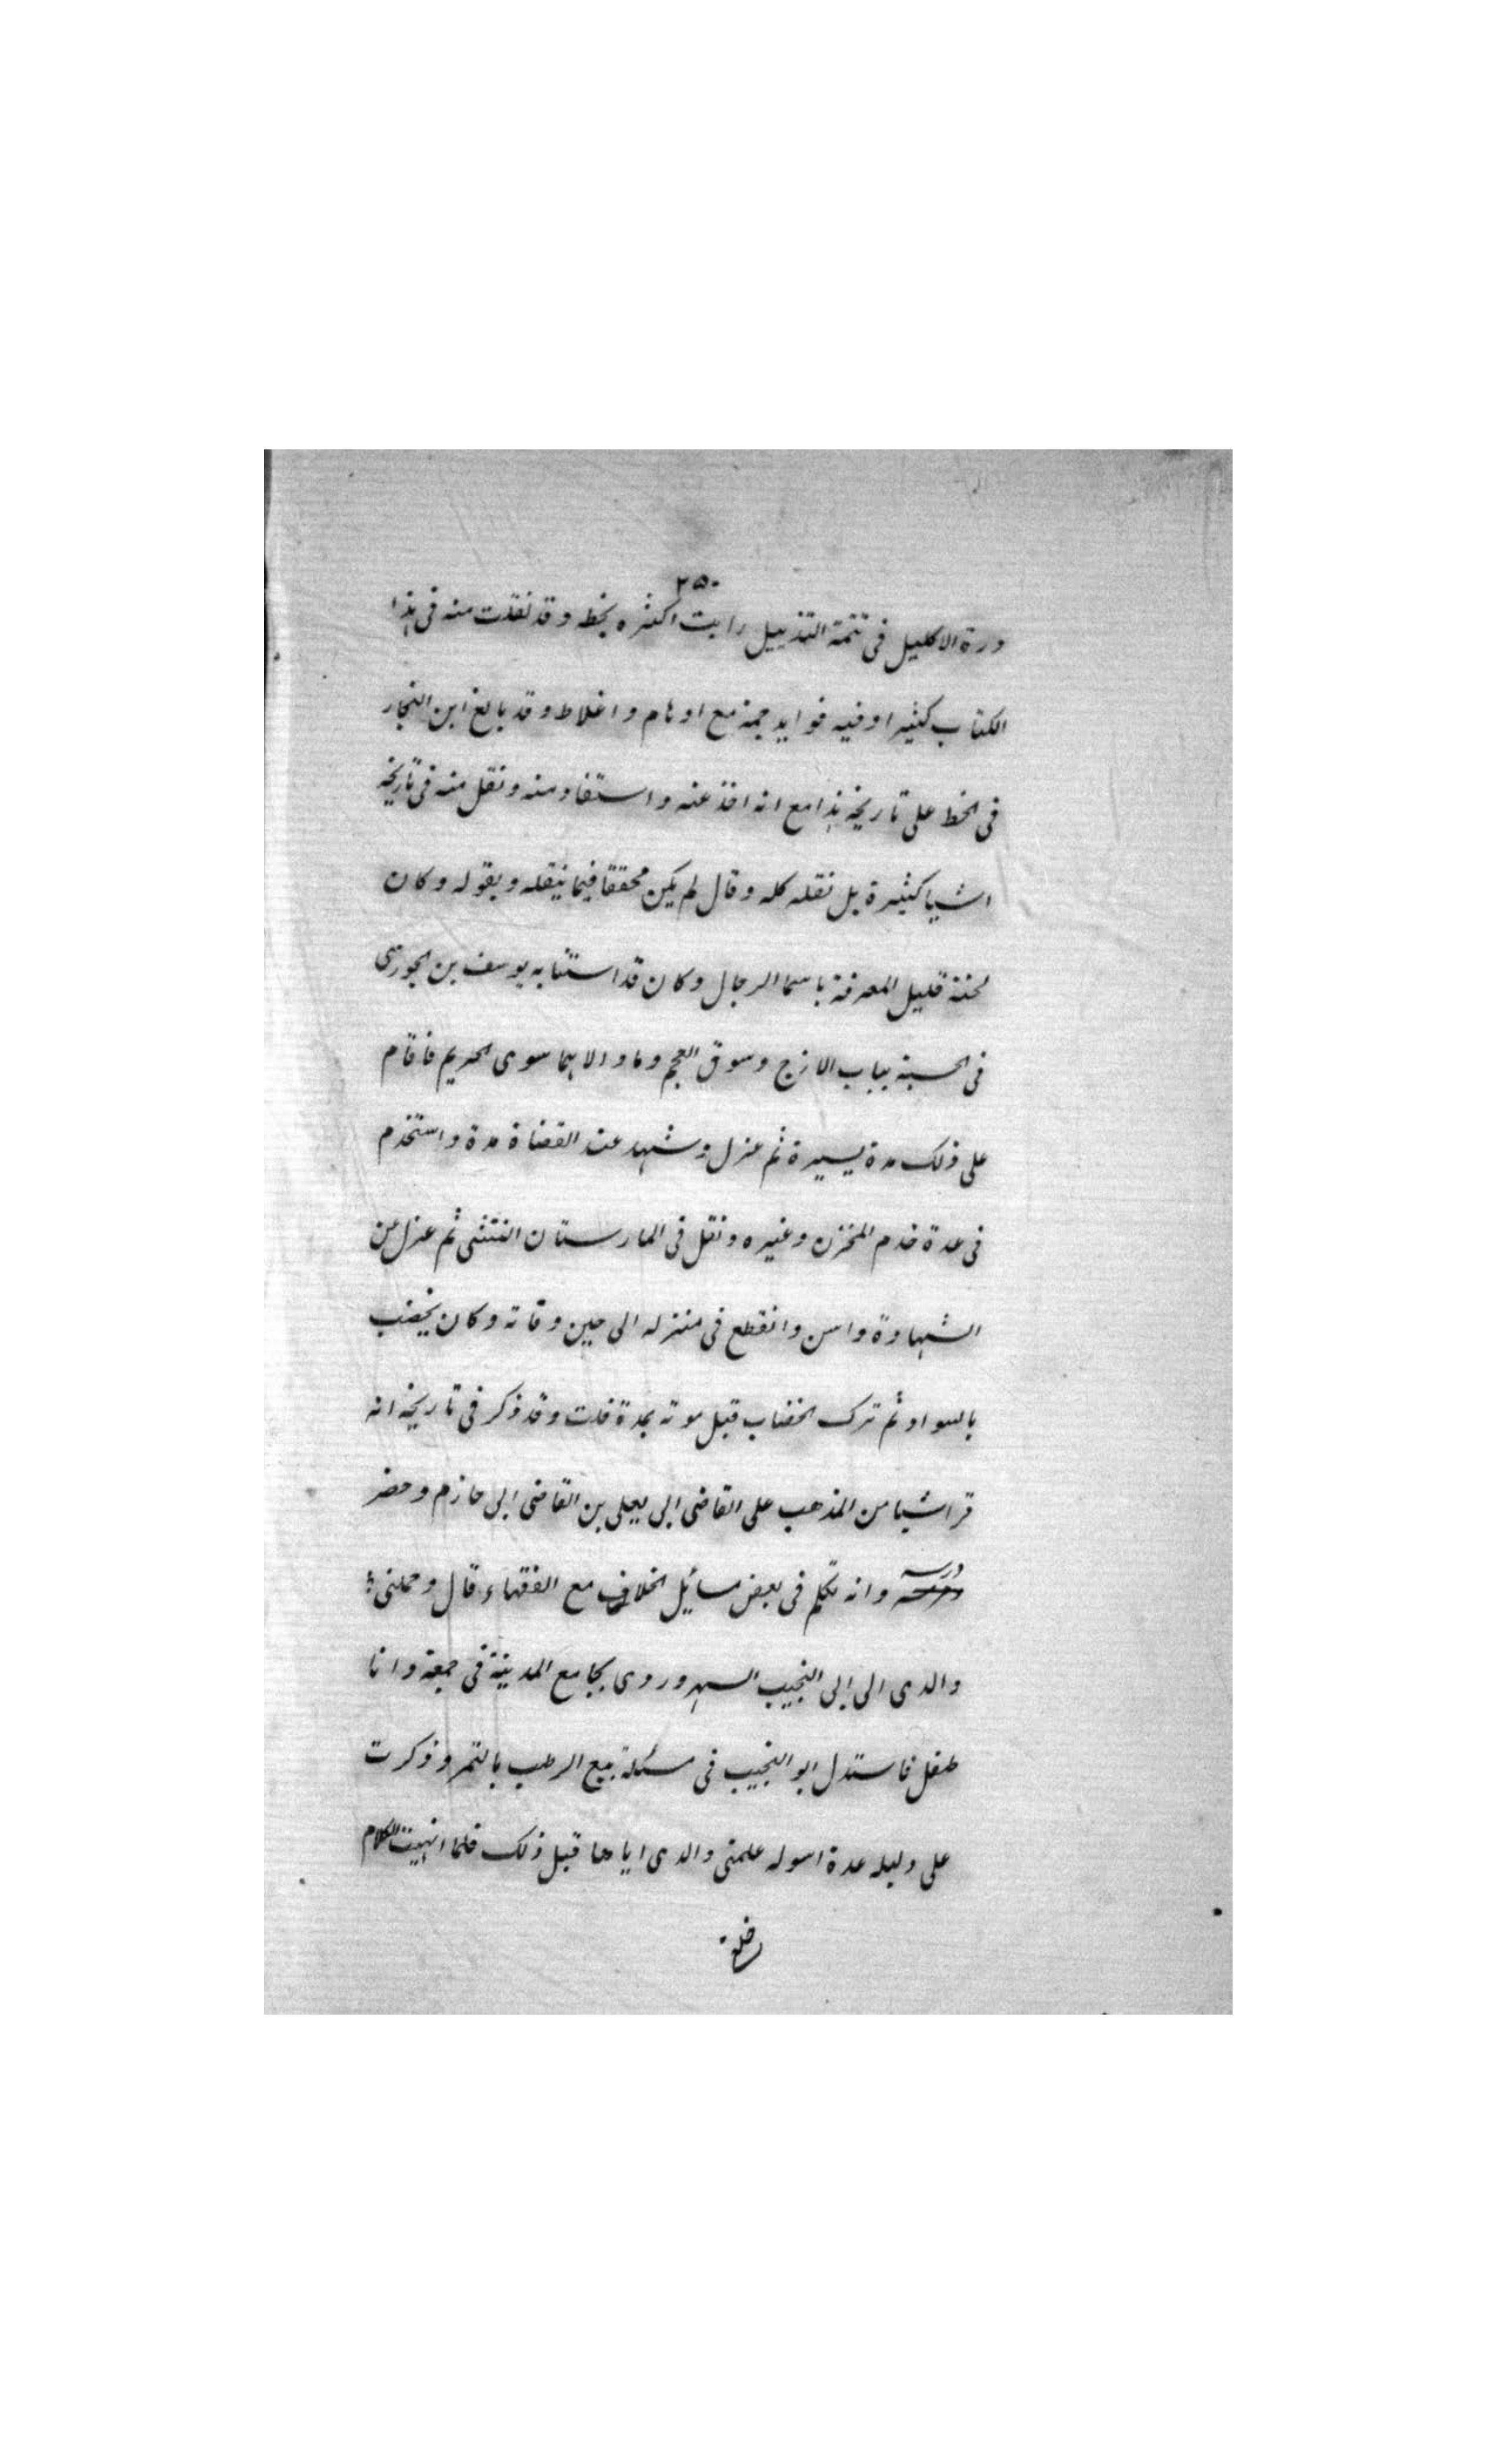 ٢٥٠
درة الاكليل فى تتمة التذييل رايت اكثره بخطه وقد نقلت منه فى هذا
الكتاب كثيرا وفيه فوايد جمة مع اوهام واغلاط وقد بالغ ابن النجار
فى الحط على تاريخه هذا مع انه اخذ عنه واستفاد منه ونقل منه فى تاريخه
اشيا كثيرة بل نقله كله وقال لم يكن محققا فيما ينقله ويقوله وكان
لحنة قليل المعرفة باسما الرجال وكان قد استنابه يوسف بن الجوزى
فى الحسبة بباب الازج وسوق العجم وما والاهما سوى الحريم فاقام
على ذلك مدة يسيرة ثم عزل وشهد عند القضاة مدة واستخدم
فى عدة خدم المخزن وغيره ونقل فى المارستان التتشى ثم عزل عن
الشهادة واسن وانقطع فى منزله الى حين وفاته وكان يخضب
بالسواد ثم ترك الخضاب قبل موته بمدة قلت وقد ذكر فى تاريخه انه
قرا شيا من المذهب على القاضى ابى يعلى بن القاضى ابى حازم وحضر
درسه وانه تكلم فى بعض مسائل الخلاف مع الفقهاء قال وحملنى
والدى الى ابى النجيب السهروردى بجامع المدينة فى جمعة وانا
طفل فاستدل ابو النجيب فى مسئلة بيع الرطب بالتمر وذكرت
على دليله عدة اسوله علمنى والدى اياها قبل ذلك فلما انهيت الكلام
خلع